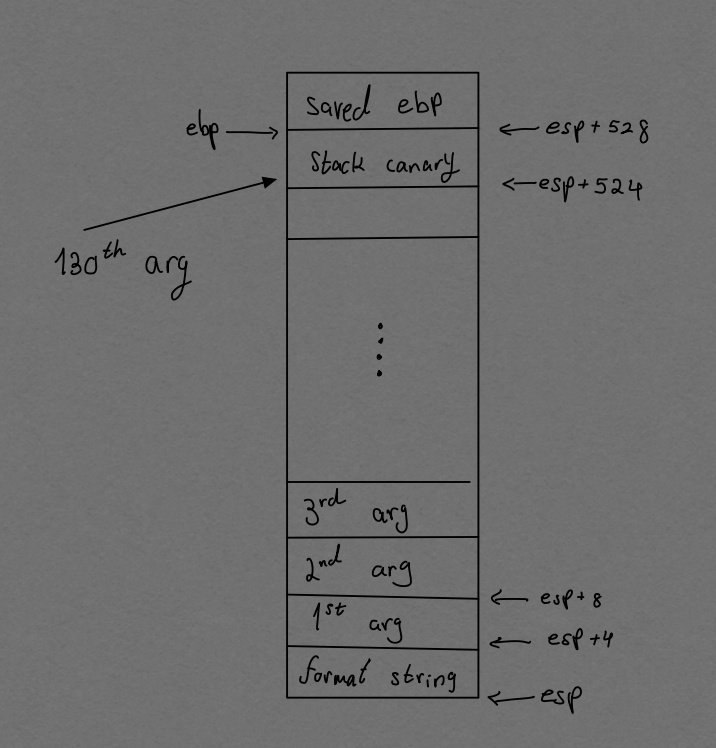 saved ebp
ebp
esp + 528
Stack canary
esp + 524
130th arg
3rd arg
2nd arg
esp + 8
1st arg
esp + 4
format string
esp